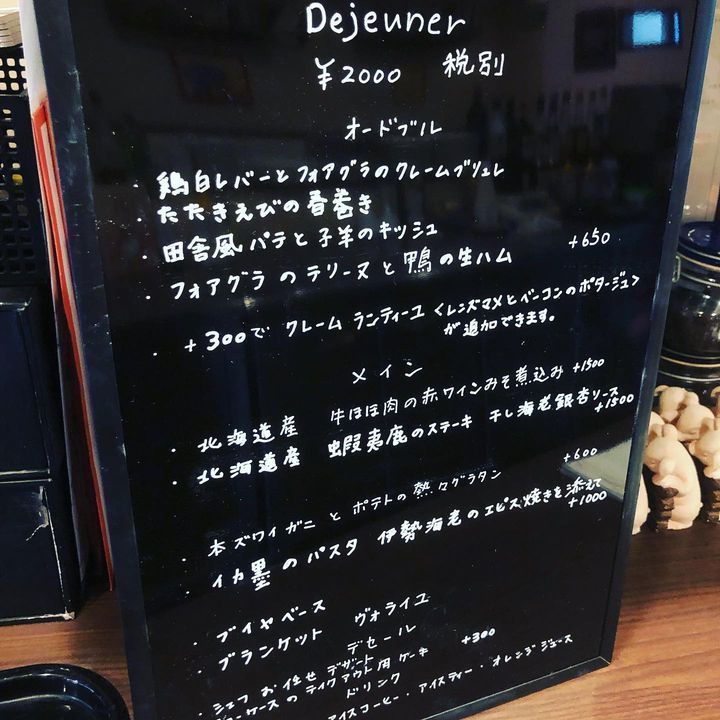 Dejeuner
¥2000 税別
オードブル
・鶏白レバーとフォアグラのクレームブリュレ
・たたきえびの春巻き
・田舎風パテと子羊のキッシュ
・フォアグラのテリーヌと鴨の生ハム +650
・+300で クレーム ランティーユ <レンズマメとベーコンのポタージュ>
が追加できます。
メイン
・北海道産 牛ほほ肉の赤ワインみそ煮込み +1500
・北海道産 蝦夷鹿のステーキ 干し海老銀杏ソース
+1500
・本ズワイガニとポテトの熱々グラタン +600
・イカ墨のパスタ 伊勢海老のエピス焼きを添えて
+1000
・ブイヤベース
・ブランケット ヴォライユ
デセール
・シェフお任せデザート
・ショーケースのテイクアウト用ケーキ +300
ドリンク
アイスコーヒー・アイスティー・オレンジジュース